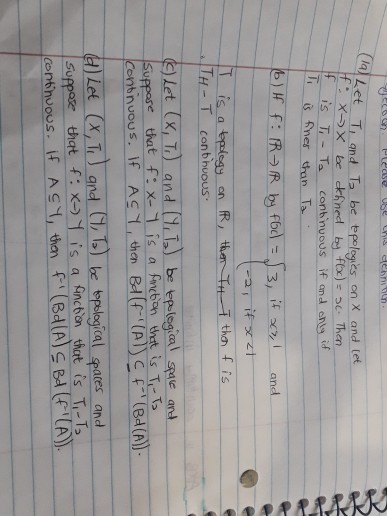 (1a) Let T₁ and T₂ be topologies on X and let
f: X→X be defined by f(x) = x. Then
f is T₁ - T₂ continuous if and only if
T₁ is finer than T₂.
(b) If f: ℝ→ℝ by f(x) = { 3, if x≥1 and
-2, if x<1
T is a topology on ℝ, then T_H - T then f is
T_H - T continuous.
(c) Let (X, T₁) and (Y, T₂) be topological space and
suppose that f: X→Y is a function that is T₁-T₂
continuous. If A ⊆ Y, then Bd(f⁻¹(A)) ⊆ f⁻¹(Bd(A)).
(d) Let (X, T₁) and (Y, T₂) be topological spaces and
suppose that f: X→Y is a function that is T₁-T₂
continuous. If A ⊆ Y, then f⁻¹(Bd(A)) ⊆ Bd(f⁻¹(A)).